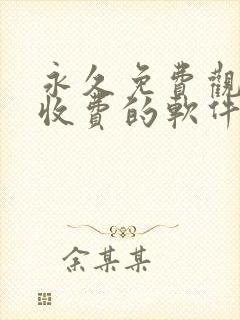 永久免費觀
收費的軟件
余某某